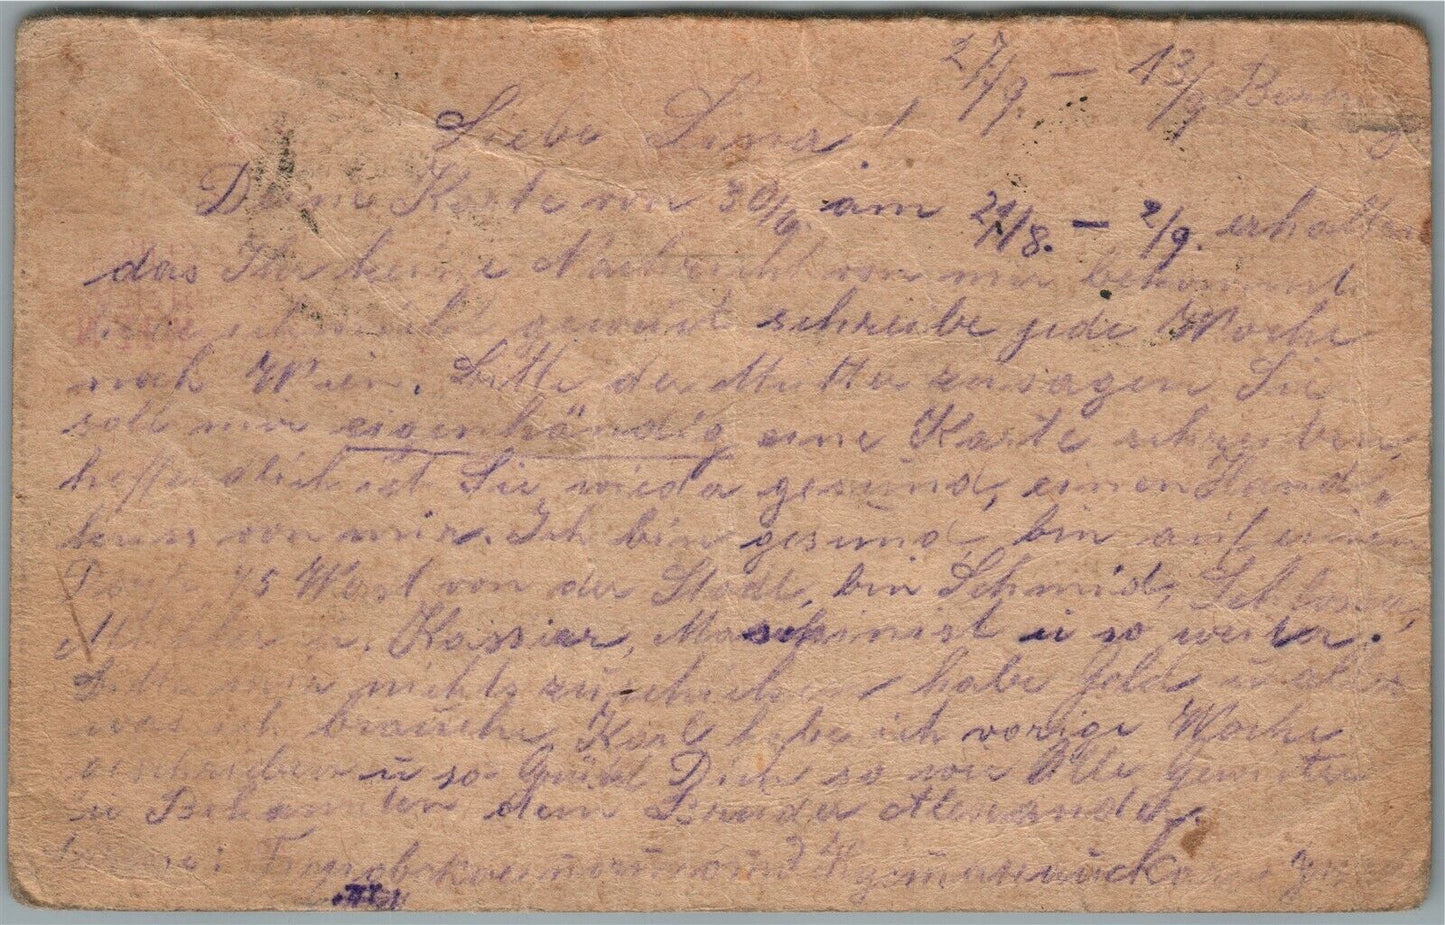 27/9. – 13/9
Liebe Lina!
Deine Karte von 30/6. am 21/8. – 2/9. erhalten
das Ihr keine Nachricht von mir bekommt
habe ich nicht gewusst schreibe jede Woche
nach Wien. Bitte der Mutter zu sagen Sie
soll mir eigenhändig eine Karte schreiben,
hoffendlich ist Sie wieda gesund, einen Hand-
kuss von mir. Ich bin gesund, bin auf einem
15 Werst von der Stadt, bin Schmid, Schlosser,
Kassier, Maschinist u so weita.
Bitte mir nichts zu schicken habe Geld u alles
was ich brauche Karl habe ich vorige Woche
geschrieben u so Grüst Dich so wie Alle Gewister
u Bekannten dein Bruder Alexander.